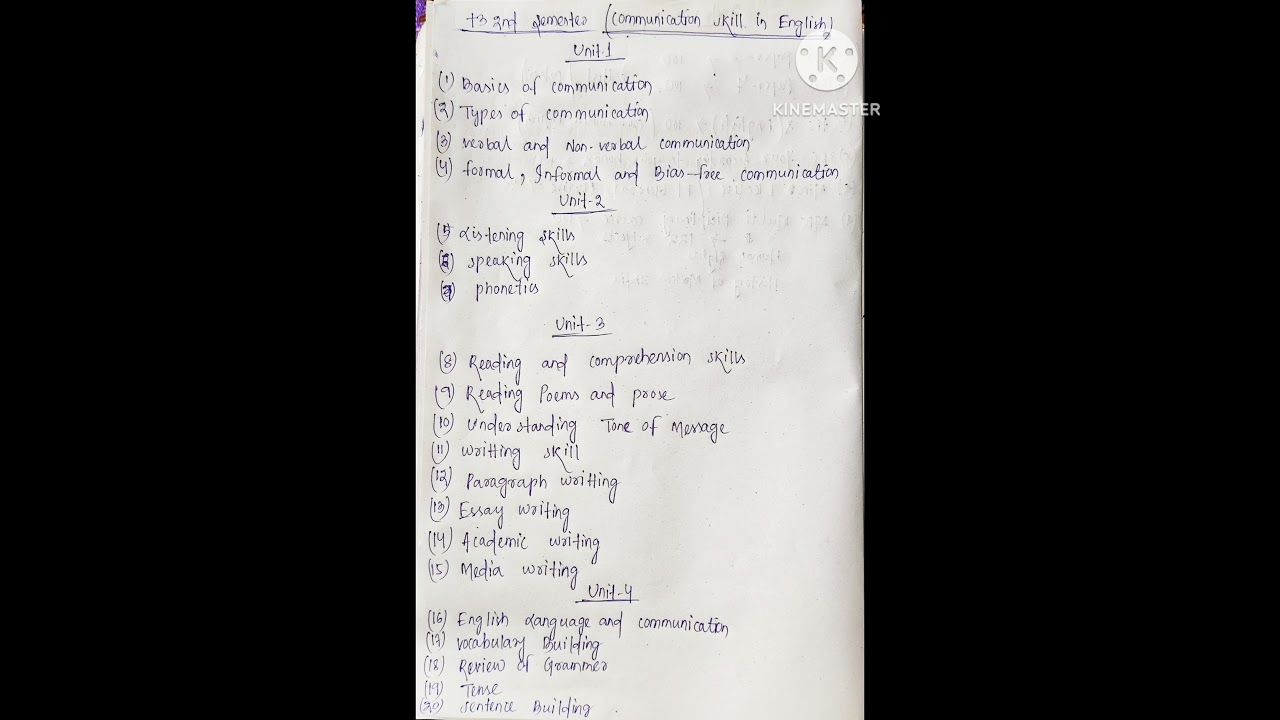 +3 2nd semester (communication skill in English)
Unit-1
K
KINEMASTER
(1) Basics of communication
(2) Types of communication
(3) verbal and Non-verbal communication
(4) formal, Informal and Bias-free communication
Unit-2
(5) Listening skills
(6) speaking skills
(7) phonetics
Unit-3
(8) Reading and comprehension skills
(9) Reading Poems and prose
(10) Understanding Tone of Message
(11) writting skill
(12) Paragraph writting
(13) Essay writing
(14) Academic writing
(15) Media writing
Unit-4
(16) English Language and communication
(17) vocabulary Building
(18) Review of Grammer
(19) Tense
(20) sentence Building